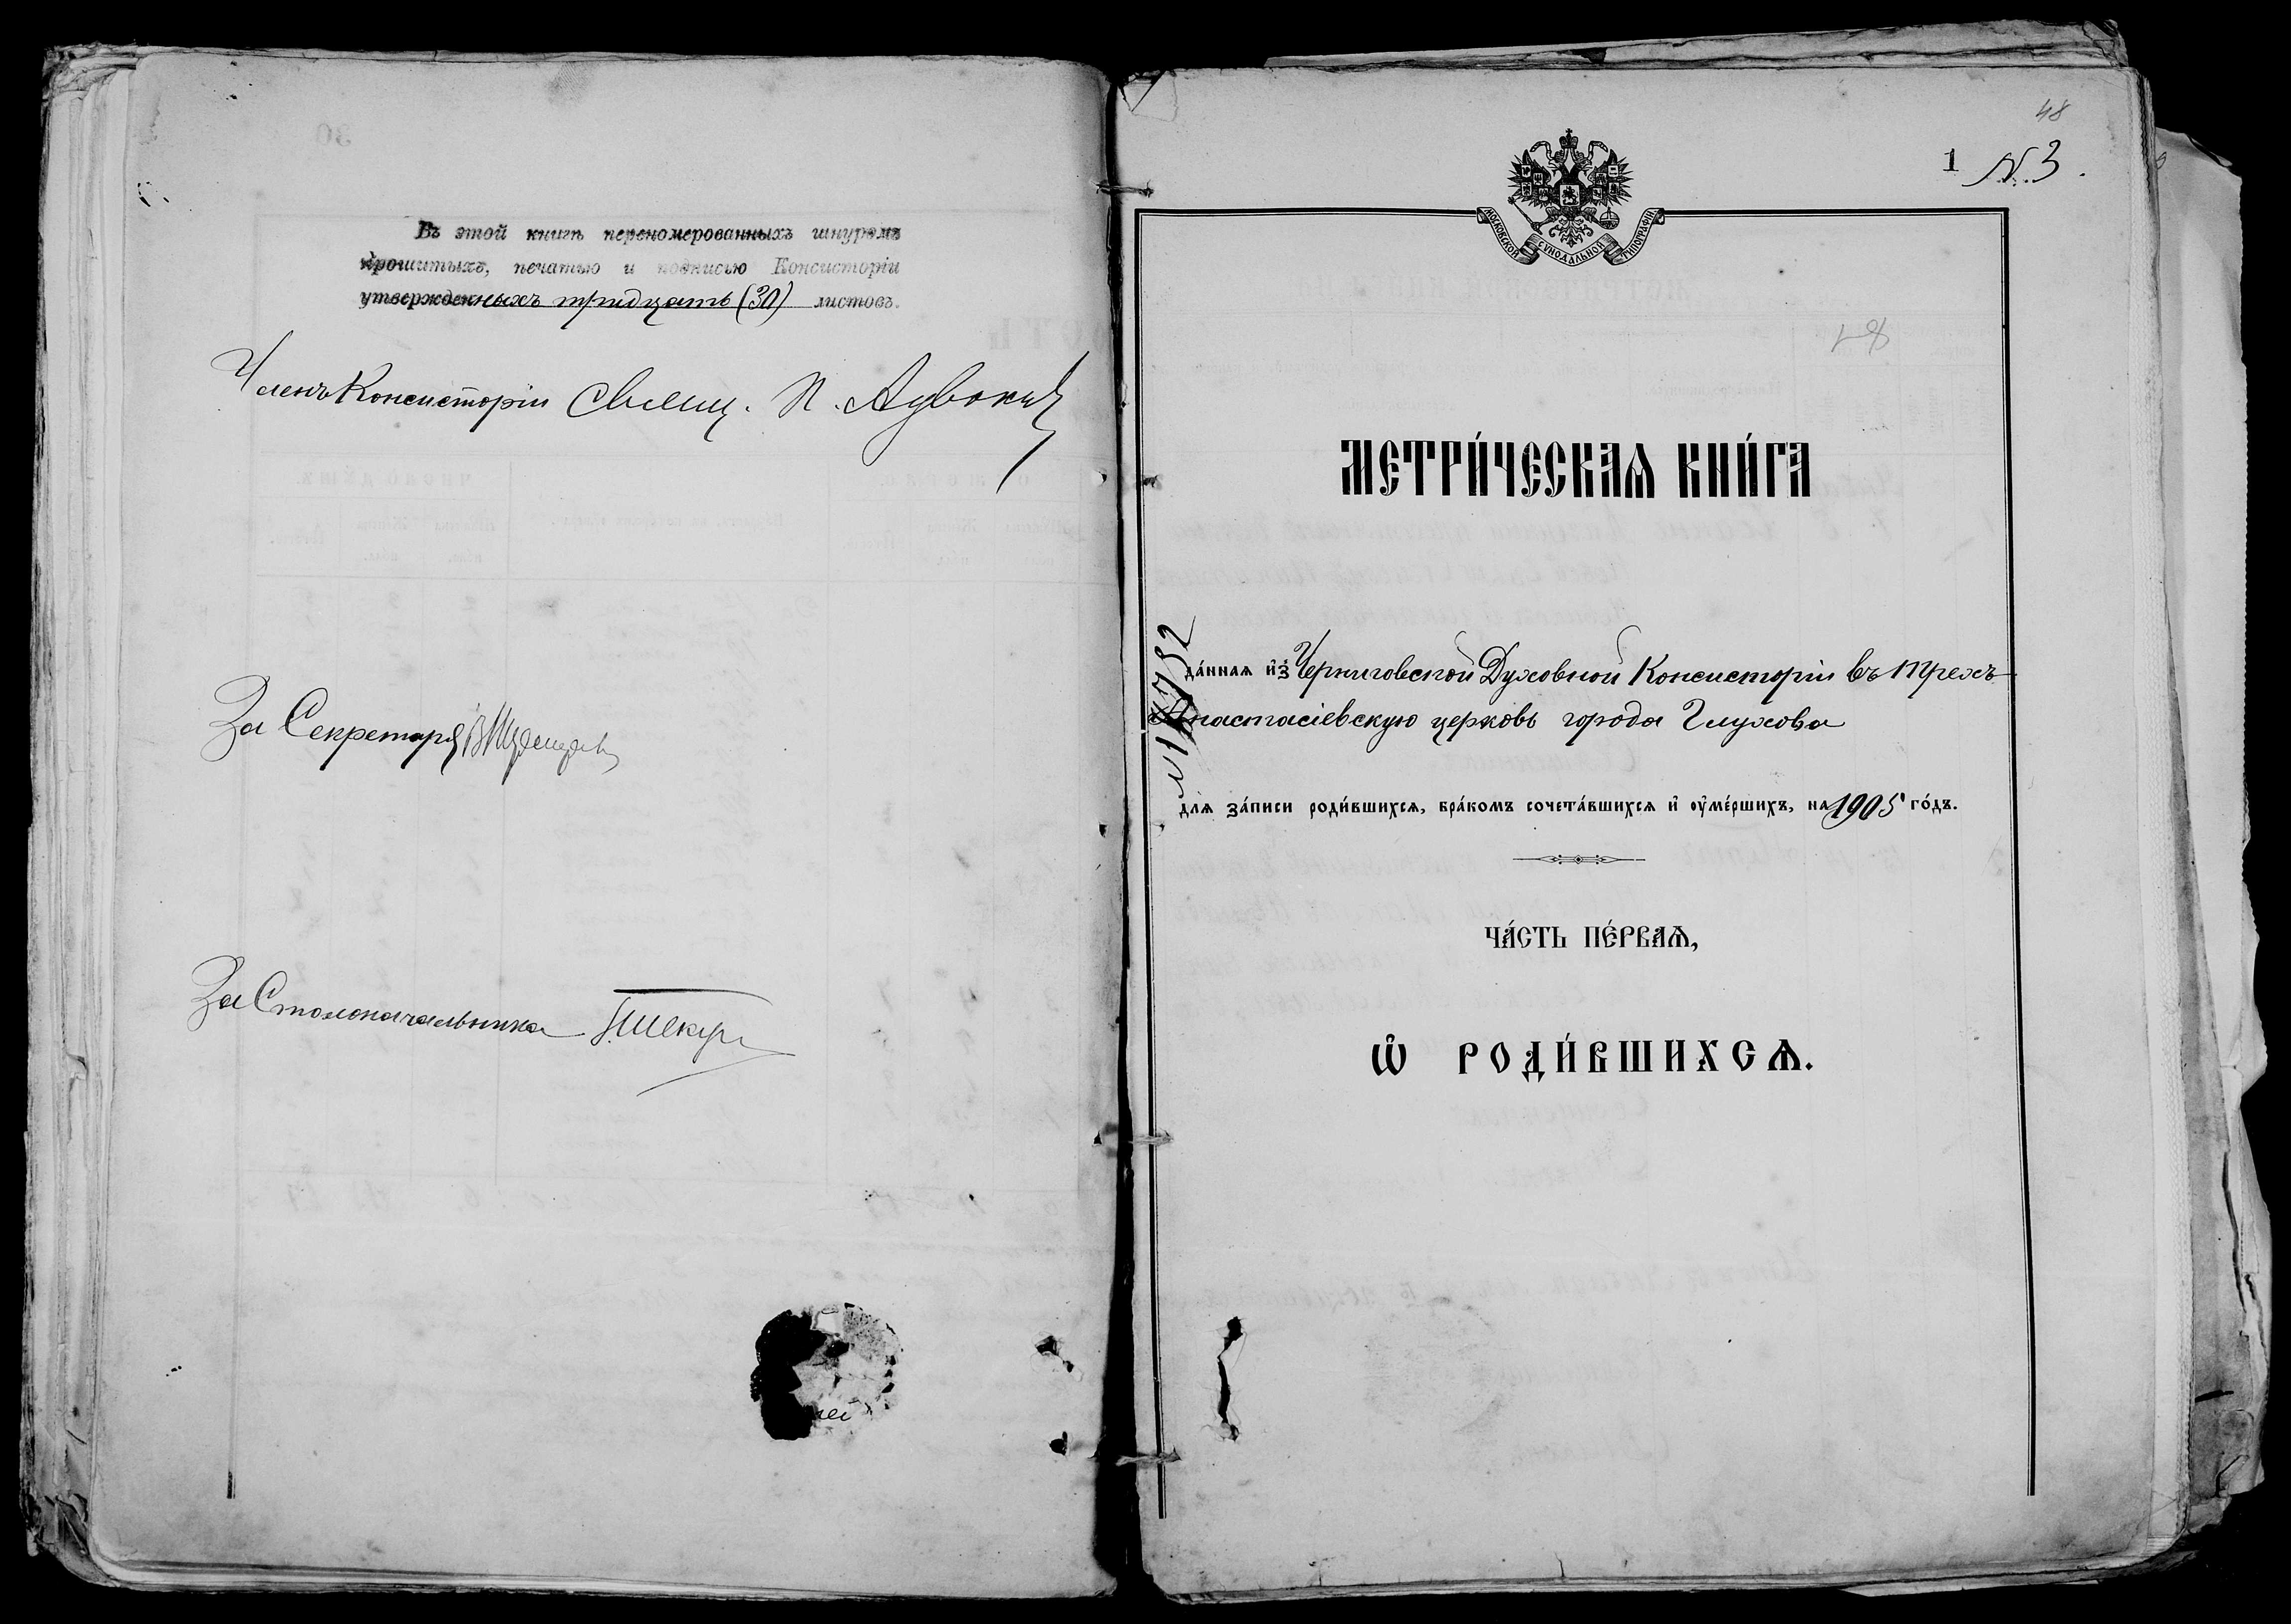 Въ этой книгѣ переномерованныхъ шнуромъ
прошитыхъ, печатью и подписью Консисторіи
утвержденныхъ тридцать (30) листовъ.
Членъ Консисторіи Свящ. П.
За Секретаря
За Столоначальника
48
1 №3.
МОСКОВСКОЙ СѴНОДАЛЬНОЙ ТИПОГРАФІИ
МЕТРИ́ЧЕСКАѦ КНИ́ГА
да́ннаѧ и҆з̾ Черниговской Духовной Консисторіи въ Трехъ-
Анастасіевскую церковь города Глухова
длѧ за́писи роди́вшихсѧ, бра́комъ сочета́вшихсѧ и҆ ᲂу҆ме́ршихъ, на 1905 го́дъ.
ЧА́СТЬ ПЕ́РВАѦ,
Ѽ РОДИ́ВШИХСѦ.